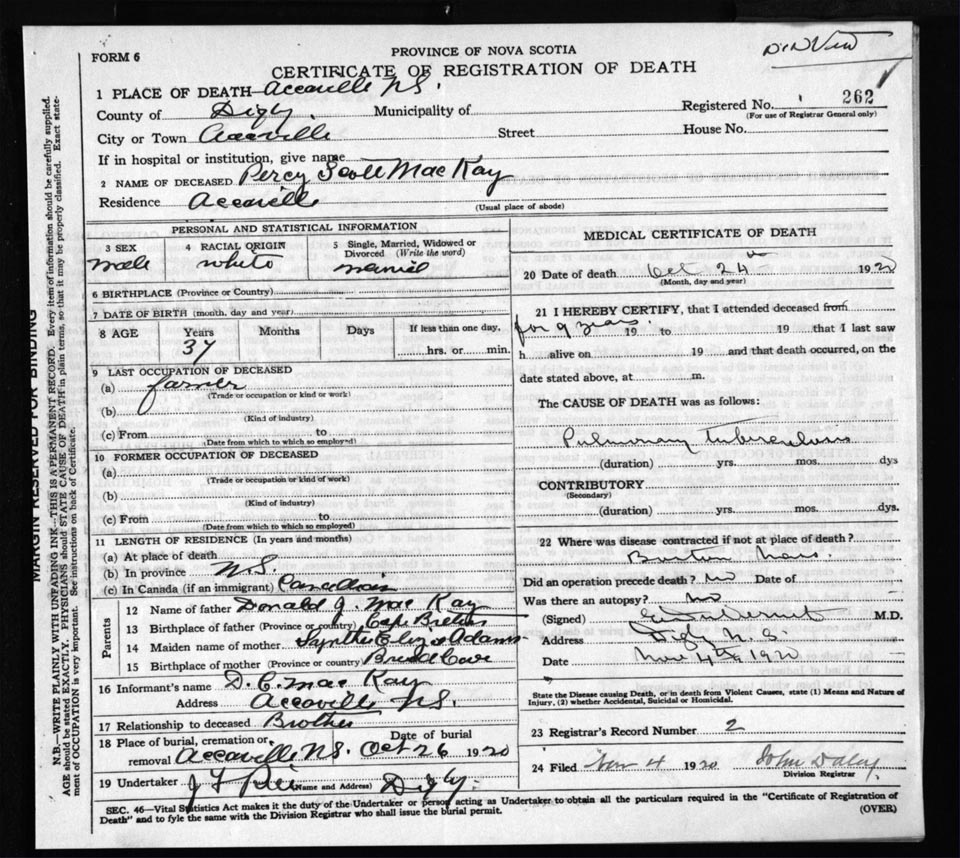 FORM 6
PROVINCE OF NOVA SCOTIA
CERTIFICATE OF REGISTRATION OF DEATH
1 PLACE OF DEATH Accaville N.S.
County of Digby Municipality of Registered No. 262
(For use of Registrar General only)
City or Town Accaville Street House No.
If in hospital or institution, give name
2 NAME OF DECEASED Percy Scott MacKay
Residence Accaville
(Usual place of abode)
PERSONAL AND STATISTICAL INFORMATION
3 SEX 4 RACIAL ORIGIN 5 Single, Married, Widowed or Divorced (Write the word)
male white married
6 BIRTHPLACE (Province or Country)
7 DATE OF BIRTH (month, day and year)
8 AGE Years Months Days If less than one day.
37 hrs. or min.
9 LAST OCCUPATION OF DECEASED
(a) farmer
(Trade or occupation or kind or work)
(b)
(Kind of industry)
(c) From to
(Date from which to which so employed)
10 FORMER OCCUPATION OF DECEASED
(a)
(Trade or occupation or kind of work)
(b)
(Kind of industry)
(c) From to
(Date from which to which so employed)
11 LENGTH OF RESIDENCE (In years and months)
(a) At place of death
(b) In province N.S.
(c) In Canada (if an immigrant) Canadian
Parents
12 Name of father Donald J. MacKay
13 Birthplace of father (Province or country) Cape Breton
14 Maiden name of mother Eliza Adams
15 Birthplace of mother (Province or country) Cove
16 Informant's name D. C. MacKay
Address Accaville N.S.
17 Relationship to deceased Brother
18 Place of burial, cremation or removal Accaville N.S. Date of burial Oct 26 1920
19 Undertaker (Name and Address) Digby.
MEDICAL CERTIFICATE OF DEATH
20 Date of death Oct 24 1920
(Month, day and year)
21 I HEREBY CERTIFY, that I attended deceased from
for 9 years. 19 to 19 that I last saw
h alive on 19 and that death occurred, on the
date stated above, at m.
The CAUSE OF DEATH was as follows:
Pulmonary Tuberculosis
(duration) yrs. mos. dys
CONTRIBUTORY
(Secondary)
(duration) yrs. mos. dys.
22 Where was disease contracted if not at place of death?
Mass.
Did an operation precede death? No Date of
Was there an autopsy? No
(Signed) M.D.
Address Digby N.S.
Date Nov 4th 1920
State the Disease causing Death, or in death from Violent Causes, state (1) Means and Nature of
Injury, (2) whether Accidental, Suicidal or Homicidal.
23 Registrar's Record Number 2
24 Filed Nov 4 1920 John Daley
Division Registrar
SEC. 46—Vital Statistics Act makes it the duty of the Undertaker or person acting as Undertaker to obtain all the particulars required in the "Certificate of Registration of
Death" and to fyle the same with the Division Registrar who shall issue the burial permit. (OVER)
MARGIN RESERVED FOR BINDING
N.B.—WRITE PLAINLY WITH UNFADING INK—THIS IS A PERMANENT RECORD. Every item of information should be carefully supplied.
AGE should be stated EXACTLY. PHYSICIANS should STATE CAUSE OF DEATH in plain terms, so that it may be properly classified. Exact state-
ment of OCCUPATION is very important. See instructions on back of Certificate.